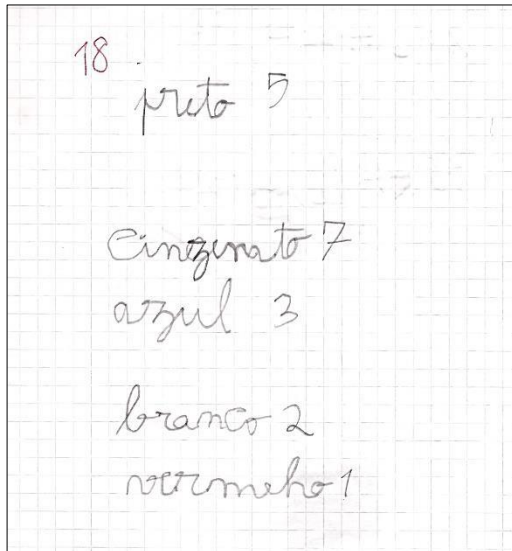 18
preto 5
cinzenato 7
azul 3
branco 2
vermeho 1